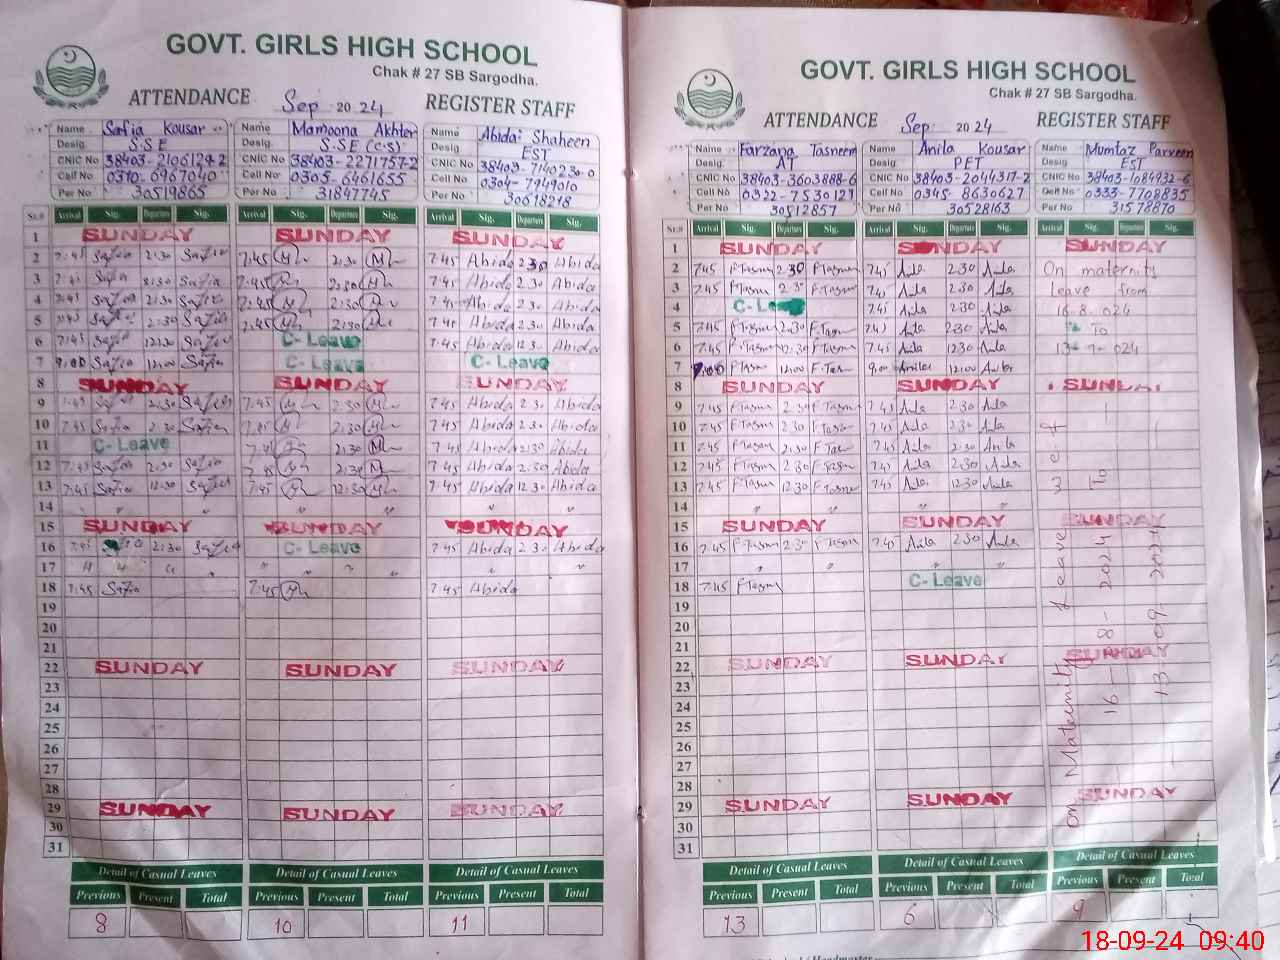 GOVT. GIRLS HIGH SCHOOL
Chak # 27 SB Sargodha.
ATTENDANCE Sep 2024 REGISTER STAFF
Name Safia Kousar
Desig. S.S.E
CNIC No 38403-2106129-2
Cell No 0310-6967040
Per No 30519865
Name Mamoona Akhter
Desig. S.S.E (C.S)
CNIC No 38403-2271757-2
Cell No 0305-6461655
Per No 31847745
Name Abida Shaheen
Desig. EST
CNIC No 38403-7140230-0
Cell No 0304-7949010
Per No 30618218
Sr.# Arrival Sig. Departure Sig. Arrival Sig. Departure Sig. Arrival Sig. Departure Sig.
1 SUNDAY SUNDAY SUNDAY
2 7:45 Safia 2:30 Safia 7:45 2:30 7:45 Abida 2:30 Abida
3 7:45 Safia 2:30 Safia 7:45 2:30 7:45 Abida 2:30 Abida
4 7:45 Safia 2:30 Safia 7:45 2:30 7:45 Abida 2:30 Abida
5 7:45 Safia 2:30 Safia 7:45 2:30 7:45 Abida 2:30 Abida
6 7:45 Safia 12:30 Safia C-Leave 7:45 Abida 12:30 Abida
7 9:00 Safia 12:00 Safia C-Leave C-Leave
8 SUNDAY SUNDAY SUNDAY
9 7:45 Safia 2:30 Safia 7:45 2:30 7:45 Abida 2:30 Abida
10 7:45 Safia 2:30 Safia 7:45 2:30 7:45 Abida 2:30 Abida
11 C-Leave 7:45 2:30 7:45 Abida 2:30 Abida
12 7:45 Safia 2:30 Safia 7:45 2:30 7:45 Abida 2:30 Abida
13 7:45 Safia 12:30 Safia 7:45 12:30 7:45 Abida 12:30 Abida
14
15 SUNDAY SUNDAY SUNDAY
16 7:45 2:30 Safia C-Leave 7:45 Abida 2:30 Abida
17
18 7:45 Safia 7:45 7:45 Abida
19
20
21
22 SUNDAY SUNDAY SUNDAY
23
24
25
26
27
28
29 SUNDAY SUNDAY SUNDAY
30
31
Detail of Casual Leaves Detail of Casual Leaves Detail of Casual Leaves
Previous Present Total Previous Present Total Previous Present Total
8 10 11
GOVT. GIRLS HIGH SCHOOL
Chak # 27 SB Sargodha.
ATTENDANCE Sep. 2024 REGISTER STAFF
Name Farzana Tasneem
Desig. AT
CNIC No 38403-3603888-6
Cell No 0322-7530121
Per No 30512857
Name Anila Kousar
Desig. PET
CNIC No 38403-2044317-2
Cell No 0345-8630627
Per No 30528163
Name Mumtaz Parveen
Desig. EST
CNIC No 38403-1084932-6
Cell No 0333-7708835
Per No 31578870
Sr.# Arrival Sig. Departure Sig. Arrival Sig. Departure Sig. Arrival Sig. Departure Sig.
1 SUNDAY SUNDAY SUNDAY
2 7:45 F.Tasnm 2:30 F.Tasnm 7:45 Anila 2:30 Anila On maternity
3 7:45 F.Tasnm 2:30 F.Tasnm 7:45 Anila 2:30 Anila Leave from
4 C-Le 7:45 Anila 2:30 Anila 16-8-024
5 7:45 F.Tasnm 2:30 F.Tasn 7:45 Anila 2:30 Anila To
6 7:45 F.Tasnm 12:30 F.Tasnm 7:45 Anila 12:30 Anila 13-9-024
7 9:00 F.Tasnm 12:00 F.Tasn 9:00 Anila 12:00 Anila
8 SUNDAY SUNDAY SUNDAY
9 7:45 F.Tasnm 2:30 F.Tasnm 7:45 Anila 2:30 Anila
10 7:45 F.Tasnm 2:30 F.Tasnm 7:45 Anila 2:30 Anila
11 7:45 F.Tasnm 2:30 F.Tas 7:45 Anila 2:30 Anila
12 7:45 F.Tasnm 2:30 F.Tasnm 7:45 Anila 2:30 Anila
13 7:45 F.Tasnm 12:30 F.Tasnm 7:45 Anila 12:30 Anila
14
15 SUNDAY SUNDAY SUNDAY
16 7:45 F.Tasnm 2:30 F.Tasnm 7:45 Anila 2:30 Anila
17
18 7:45 F.Tasnm C-Leave
19
20
21
22 SUNDAY SUNDAY SUNDAY
23
24
25
26
27
28
29 SUNDAY SUNDAY SUNDAY
30
31
On Maternity Leave
16-08-2024 To
13-09-2024
Detail of Casual Leaves Detail of Casual Leaves Detail of Casual Leaves
Previous Present Total Previous Present Total Previous Present Total
13 6 9
18-09-24 09:40